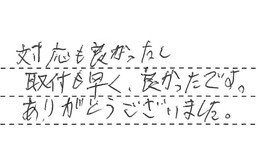 対応も良かったし
取付も早く、良かったです。
ありがとうございました。